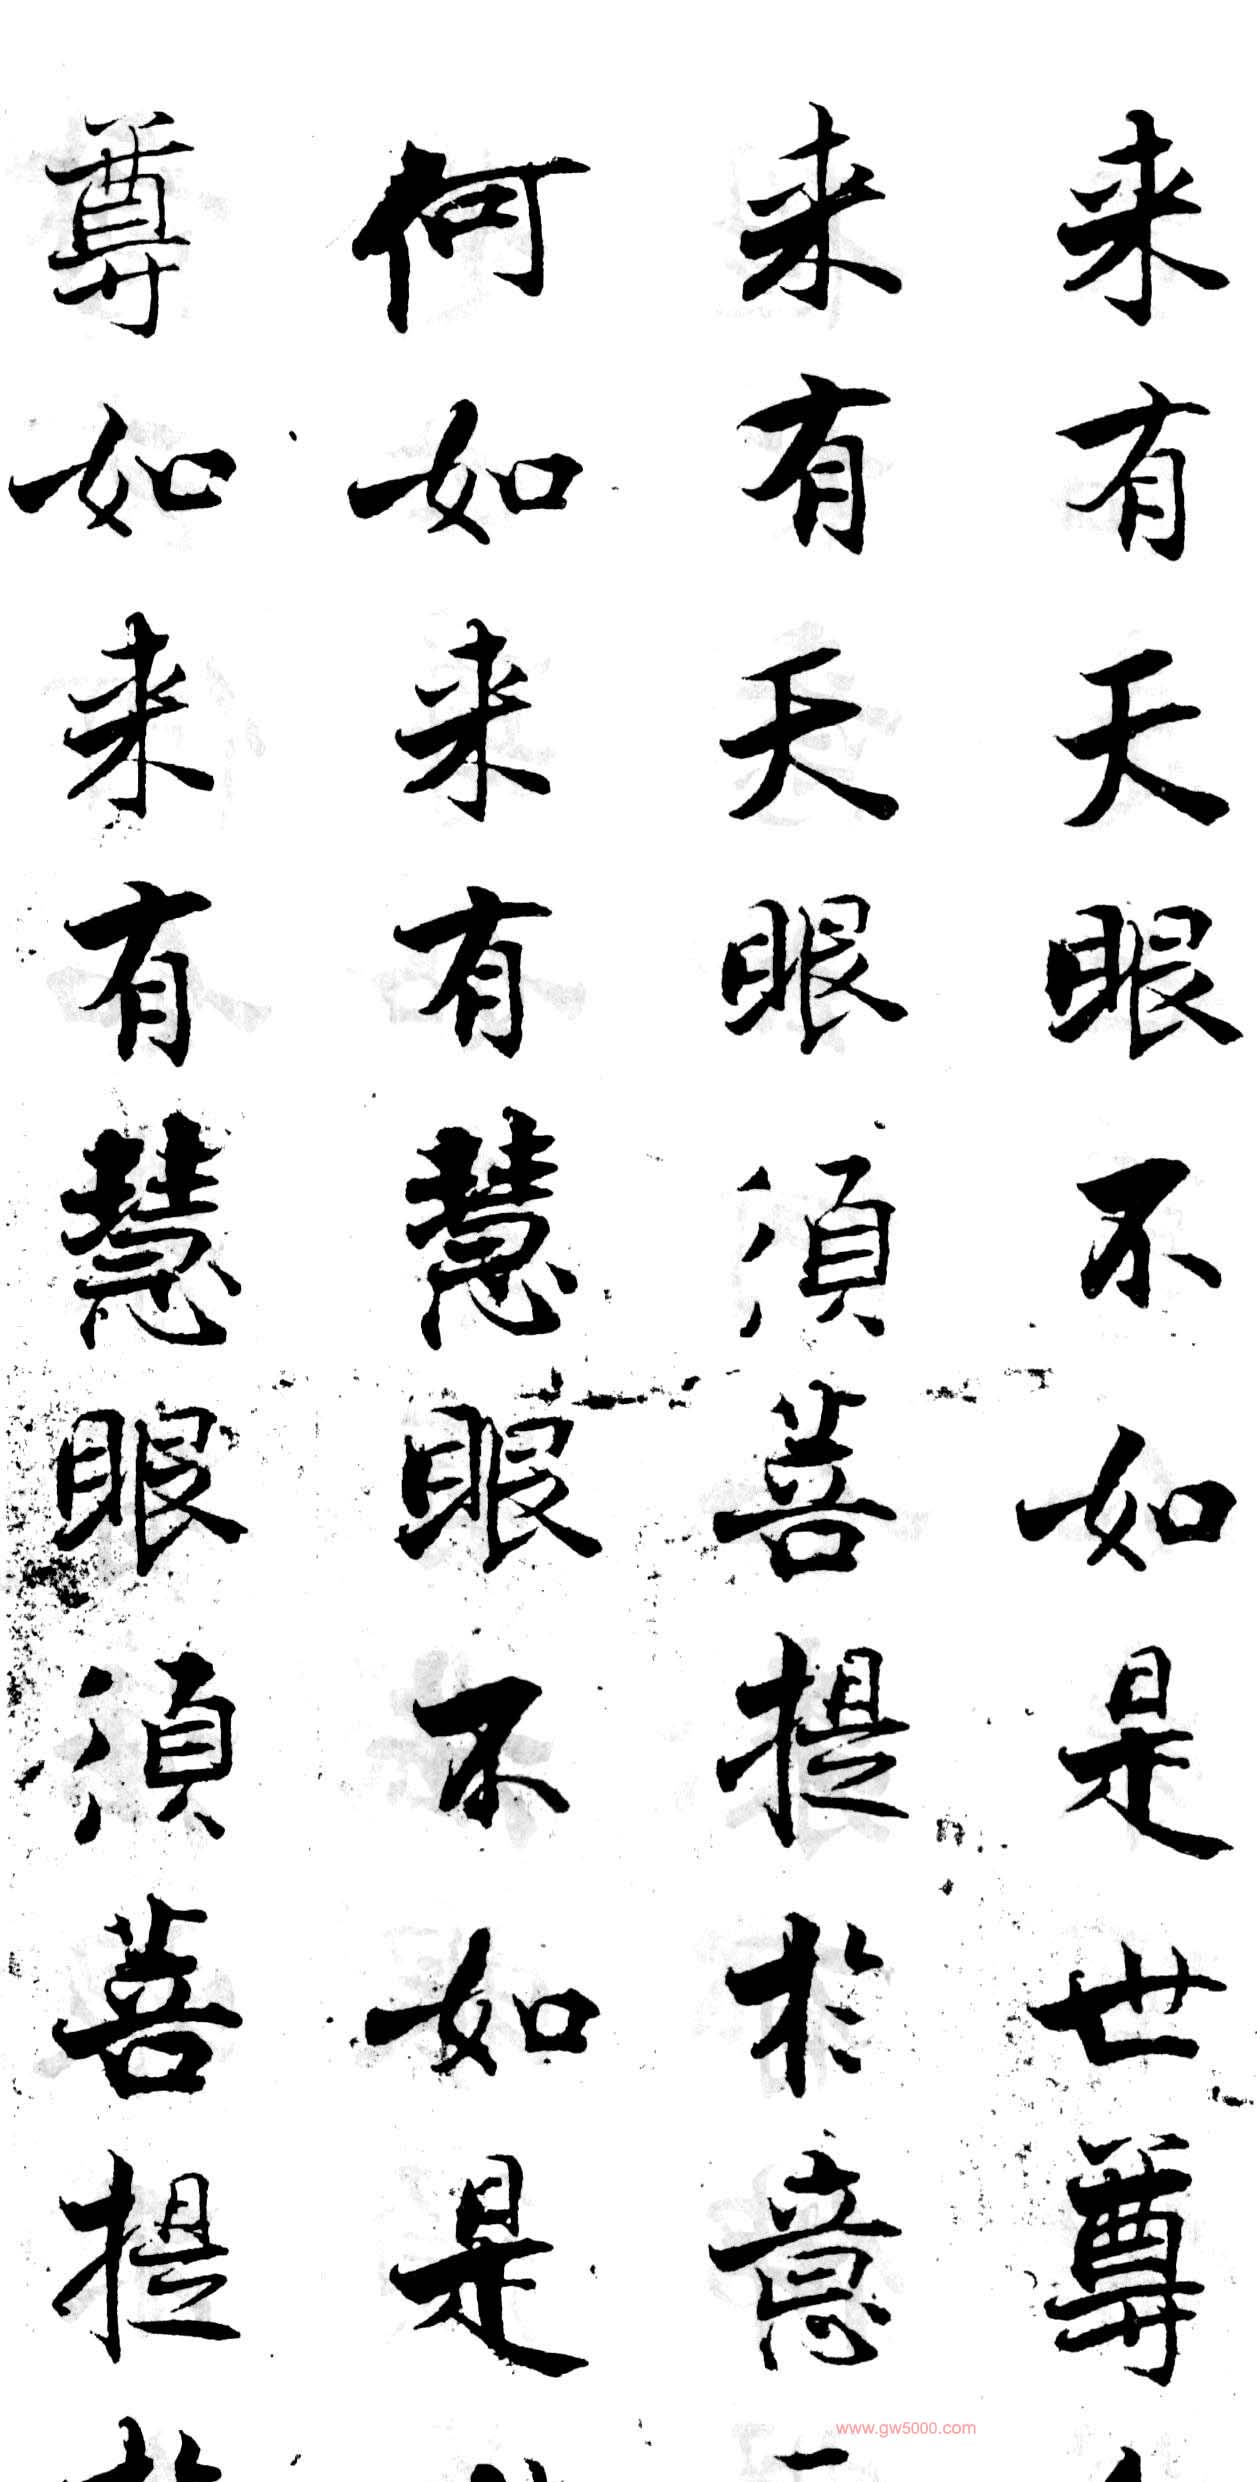 来有天眼不如是世尊
来有天眼須菩提於意
何如来有慧眼不如是
尊如来有慧眼須菩提
www.gw5000.com